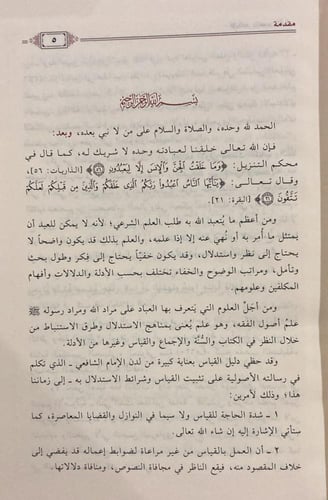 مقدمة
٥
بسم الله الرحمن الرحيم
الحمد لله وحده، والصلاة والسلام على من لا نبي بعده، وبعد:
فإن الله تعالى خلقنا لعبادته وحده لا شريك له، كما قال في
محكم التنزيل: ﴿وَمَا خَلَقْتُ الْجِنَّ وَالْإِنسَ إِلَّا لِيَعْبُدُونِ ۝٥٦﴾ [الذاريات: ٥٦]،
وقال تعالى: ﴿يَا أَيُّهَا النَّاسُ اعْبُدُوا رَبَّكُمُ الَّذِي خَلَقَكُمْ وَالَّذِينَ مِن قَبْلِكُمْ لَعَلَّكُمْ
تَتَّقُونَ ۝٢١﴾ [البقرة: ٢١].
ومن أعظم ما يُتعبد الله به طلب العلم الشرعي؛ لأنه لا يمكن للعبد أن
يمتثل ما أُمر به أو نُهي عنه إلا إذا علمه، والعلم بذلك قد يكون واضحاً لا
يحتاج إلى نظر واستدلال، وقد يكون خفيّاً يحتاج إلى فكر وطول بحث
وتأمل، ومراتب الوضوح والخفاء تختلف بحسب الأدلة والدلالات وأفهام
المكلفين وعلومهم.
ومن أجلّ العلوم التي يتعرف بها العباد على مراد الله ومراد رسوله ﷺ
علمُ أصول الفقه، وهو علم يُعنى بمناهج الاستدلال وطرق الاستنباط من
خلال النظر في الكتاب والسُّنَّة والإجماع والقياس وغيرها من الأدلة.
وقد حظي دليل القياس بعناية كبيرة من لدن الإمام الشافعي ـ الذي تكلم
في رسالته الأصولية على تثبيت القياس وشرائط الاستدلال به ـ إلى زماننا
هذا؛ وذلك لأمرين:
١ ـ شدة الحاجة للقياس ولا سيما في النوازل والقضايا المعاصرة، كما
ستأتي الإشارة إليه إن شاء الله تعالى.
٢ ـ أن العمل بالقياس من غير مراعاة لضوابط إعماله قد يفضي إلى
خلاف المقصود منه، فيقع الناظر في مجافاة النصوص، ومنافاة دلالاتها.